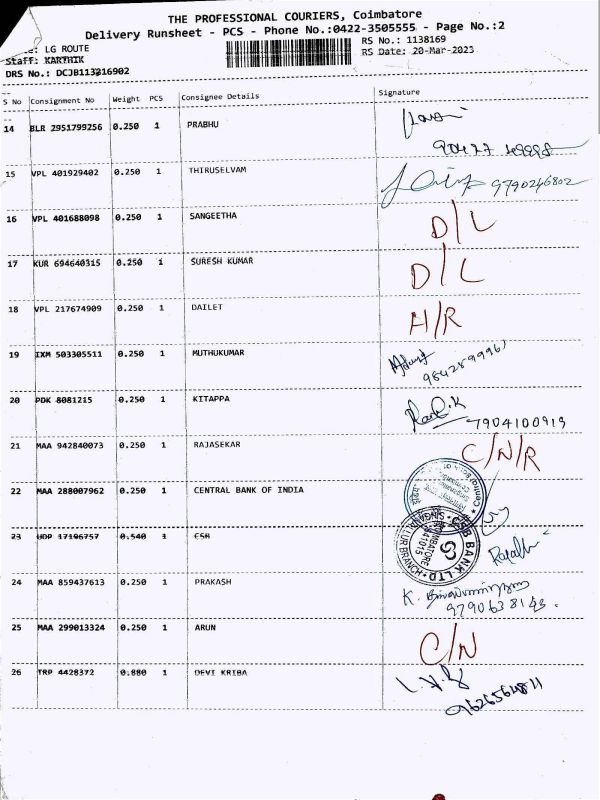 THE PROFESSIONAL COURIERS, Coimbatore
Delivery Runsheet - PCS - Phone No.:0422-3505555 - Page No.:2
: LG ROUTE RS No.: 1138169
Staff: KARTHIK RS Date: 20-Mar-2023
DRS No.: DCJB113216902
S No Consignment No Weight PCS Consignee Details Signature
14 BLR 2951799256 0.250 1 PRABHU
15 VPL 401929402 0.250 1 THIRUSELVAM 9790246802
16 VPL 401688098 0.250 1 SANGEETHA D/L
17 KUR 694640315 0.250 1 SURESH KUMAR D/L
18 VPL 217674909 0.250 1 DAILET H/R
19 IXM 503305511 0.250 1 MUTHUKUMAR
9842899961
20 PDK 8081215 0.250 1 KITAPPA
7904100919
21 MAA 942840073 0.250 1 RAJASEKAR C/N/R
22 MAA 288007962 0.250 1 CENTRAL BANK OF INDIA
23 UDP 17196757 0.540 1 CSB
CSB BANK LTD
COIMBATORE
641015
24 MAA 859437613 0.250 1 PRAKASH K.
9790638143.
25 MAA 299013324 0.250 1 ARUN C/N
26 TRP 4428372 0.880 1 DEVI KRIBA
9626564811